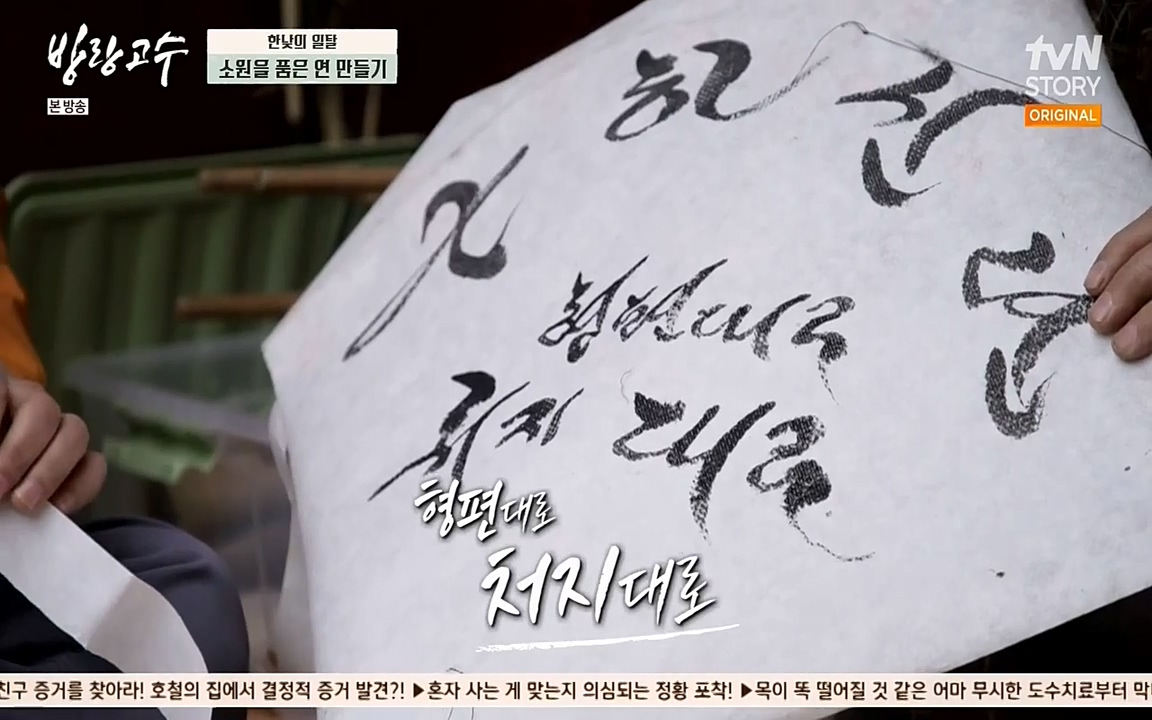 방랑고수
한낮의 일탈
소원을 품은 연 만들기
본 방송
tvN
STORY
ORIGINAL
형편대로
처지대로
형편대로
처지대로
친구 증거를 찾아라! 호철의 집에서 결정적 증거 발견?! ▶혼자 사는 게 맞는지 의심되는 정황 포착! ▶목이 똑 떨어질 것 같은 어마 무시한 도수치료부터 막